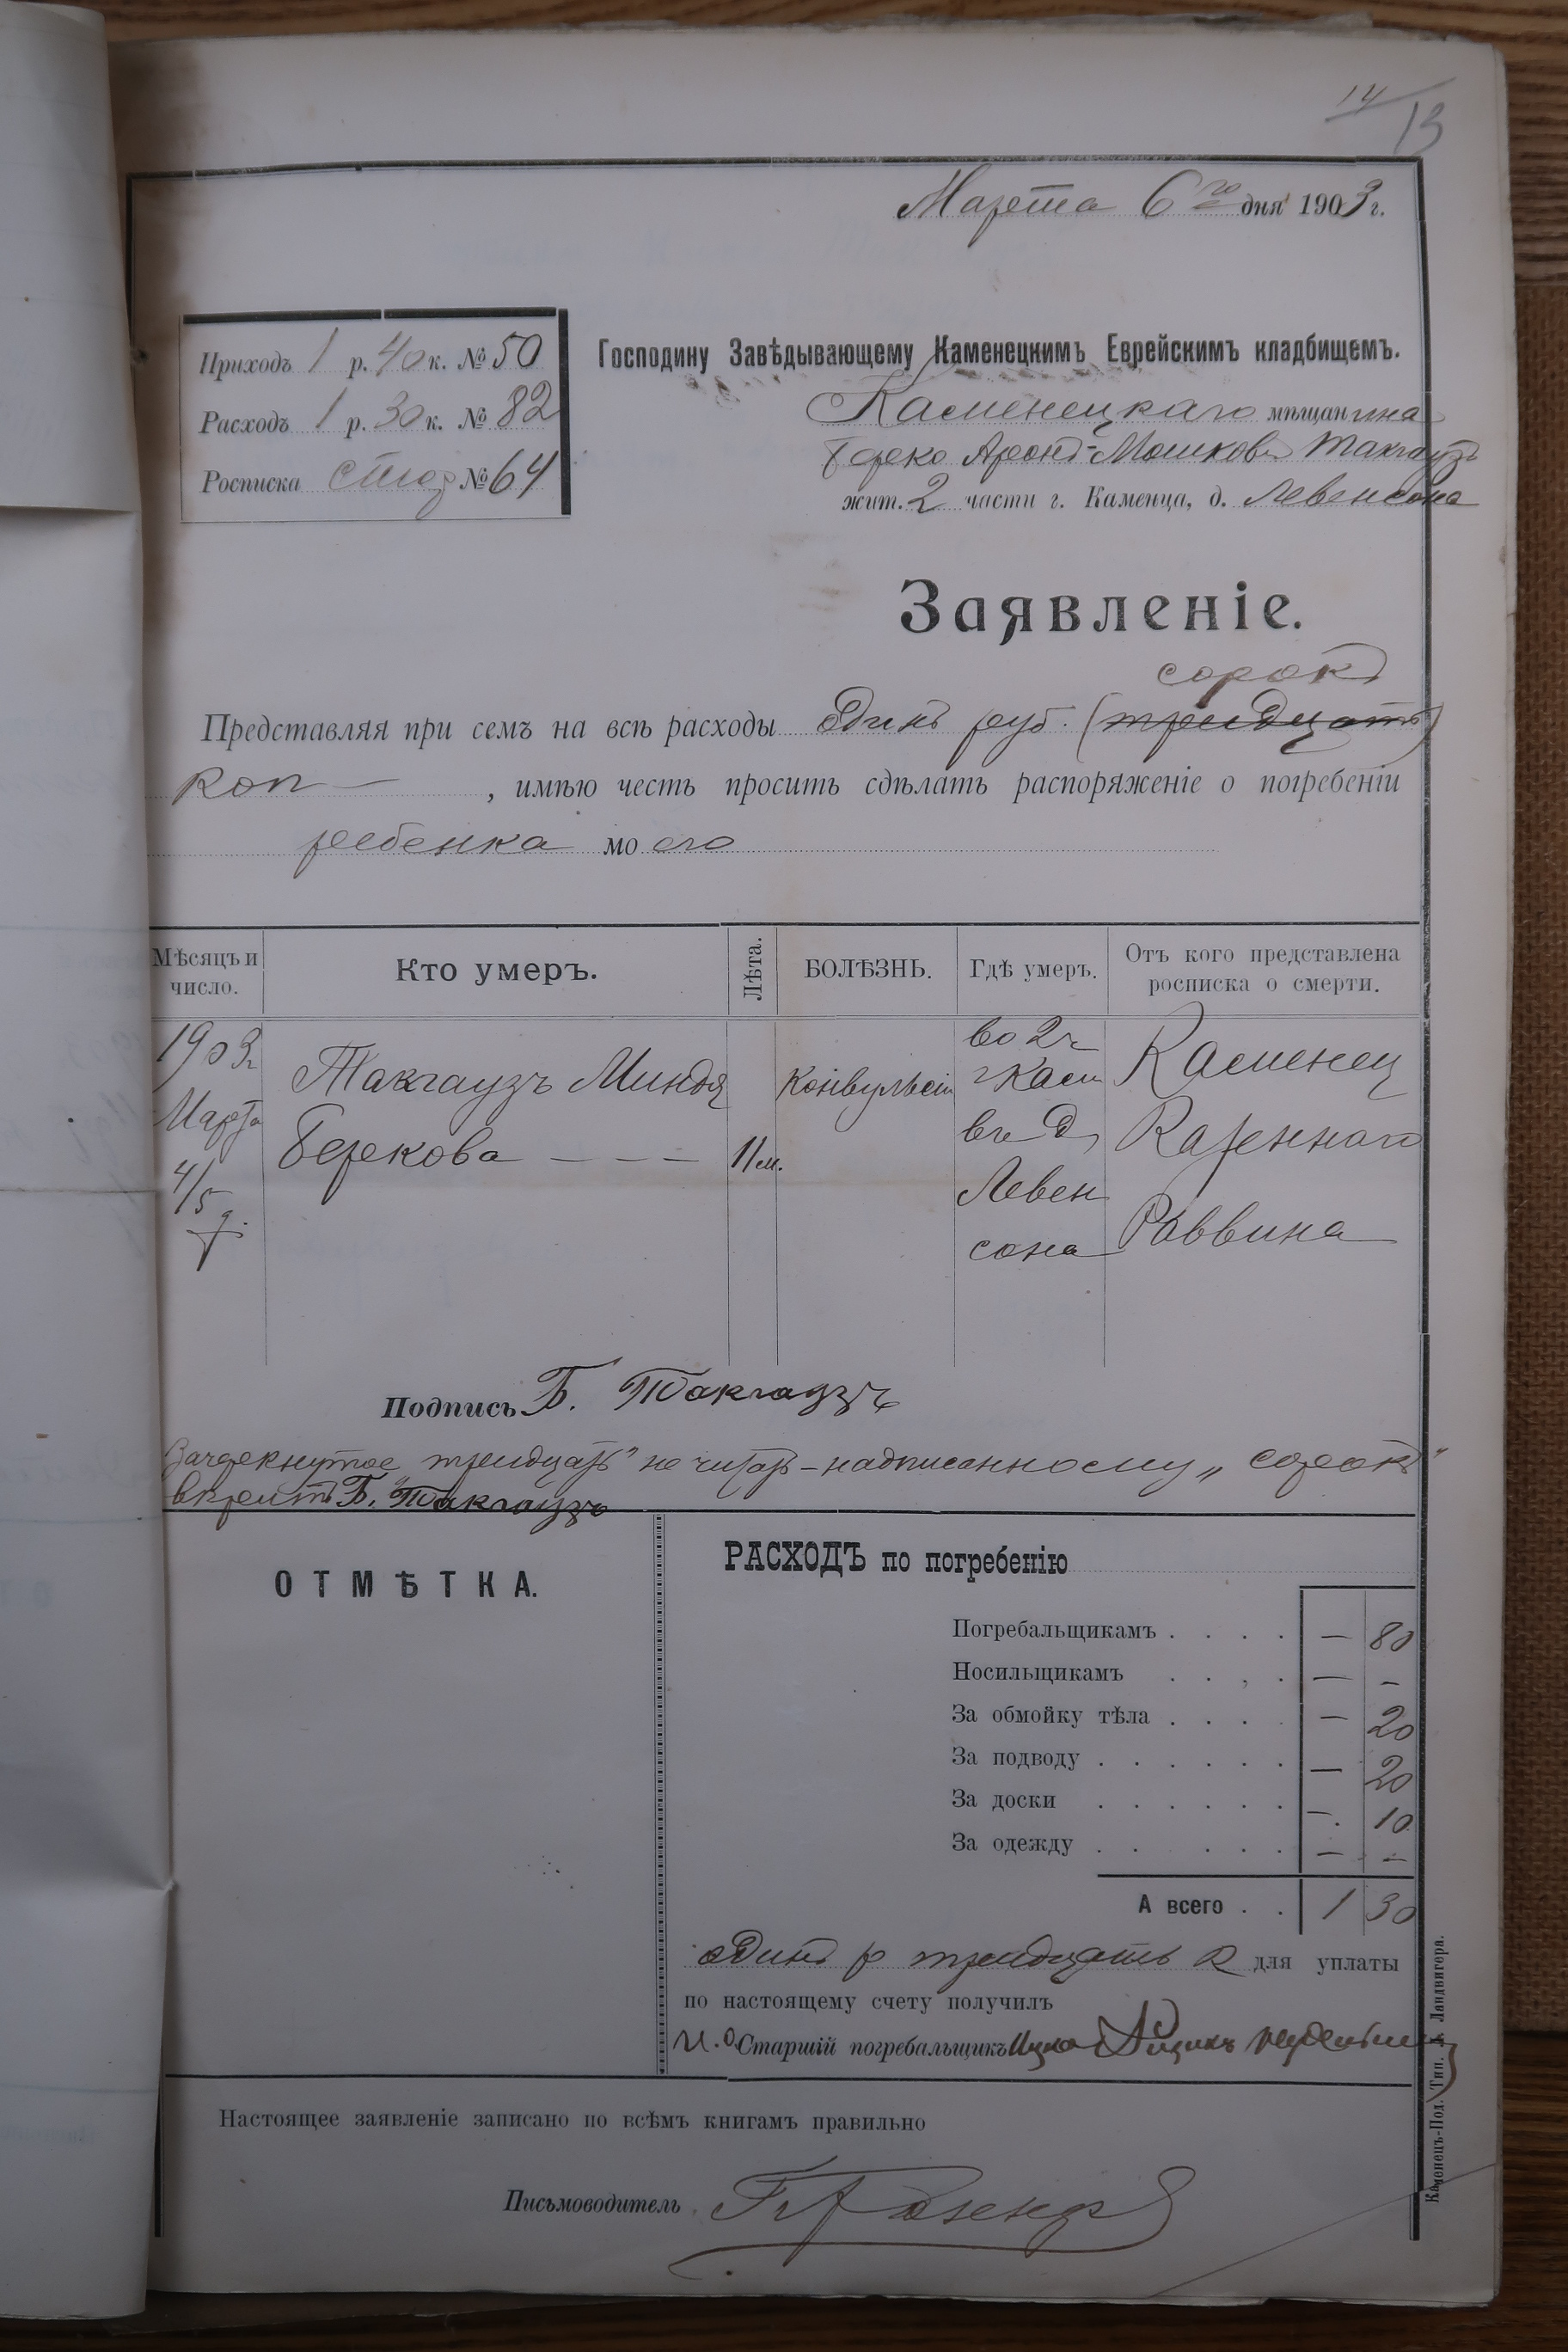 14
13
Марта 6го дня 1903 г.
Приходъ 1 р. 40 к. № 50
Расходъ 1 р. 30 к. № 82
Росписка № 64
Господину Завѣдывающему Каменецкимъ Еврейскимъ кладбищемъ.
Каменецкаго мѣщанина
Берко Аронъ-Мошковъ Такгаузъ
жит. 2 части г. Каменца, д. Левенсона
Заявленіе.
сорокъ
Представляя при семъ на всѣ расходы одинъ руб. (тридцать)
коп — , имѣю честь просить сдѣлать распоряженіе о погребеніи
ребенка моего
Мѣсяцъ и число.
Кто умеръ.
Лѣта.
БОЛѢЗНЬ.
Гдѣ умеръ.
Отъ кого представлена росписка о смерти.
1903 г
Марта
4/5
Такгаузъ Миндя
Беркова — — —
11 м.
Конвульсіи
во 2 ч
г Кам
въ д,
Левен
сона
Каменец
Казеннаго
Раввина
Подпись Б. Такгаузъ
Зачеркнутое „тридцать" не читать – надписанному „сорокъ"
вѣрить Б. Такгаузъ
ОТМѢТКА.
РАСХОДЪ по погребенію
Погребальщикамъ . . . . — 80
Носильщикамъ . . . . — -
За обмойку тѣла . . . . — 20
За подводу . . . . . . — 20
За доски . . . . . . — 10
За одежду . . . . . . — —
А всего . . 1 30
одинъ р тридцать к для уплаты
по настоящему счету получилъ
И. о. Старшій погребальщикъ Ицко
Настоящее заявленіе записано по всѣмъ книгамъ правильно
Письмоводитель
Каменецъ-Под. Тип. Ляндвигера.